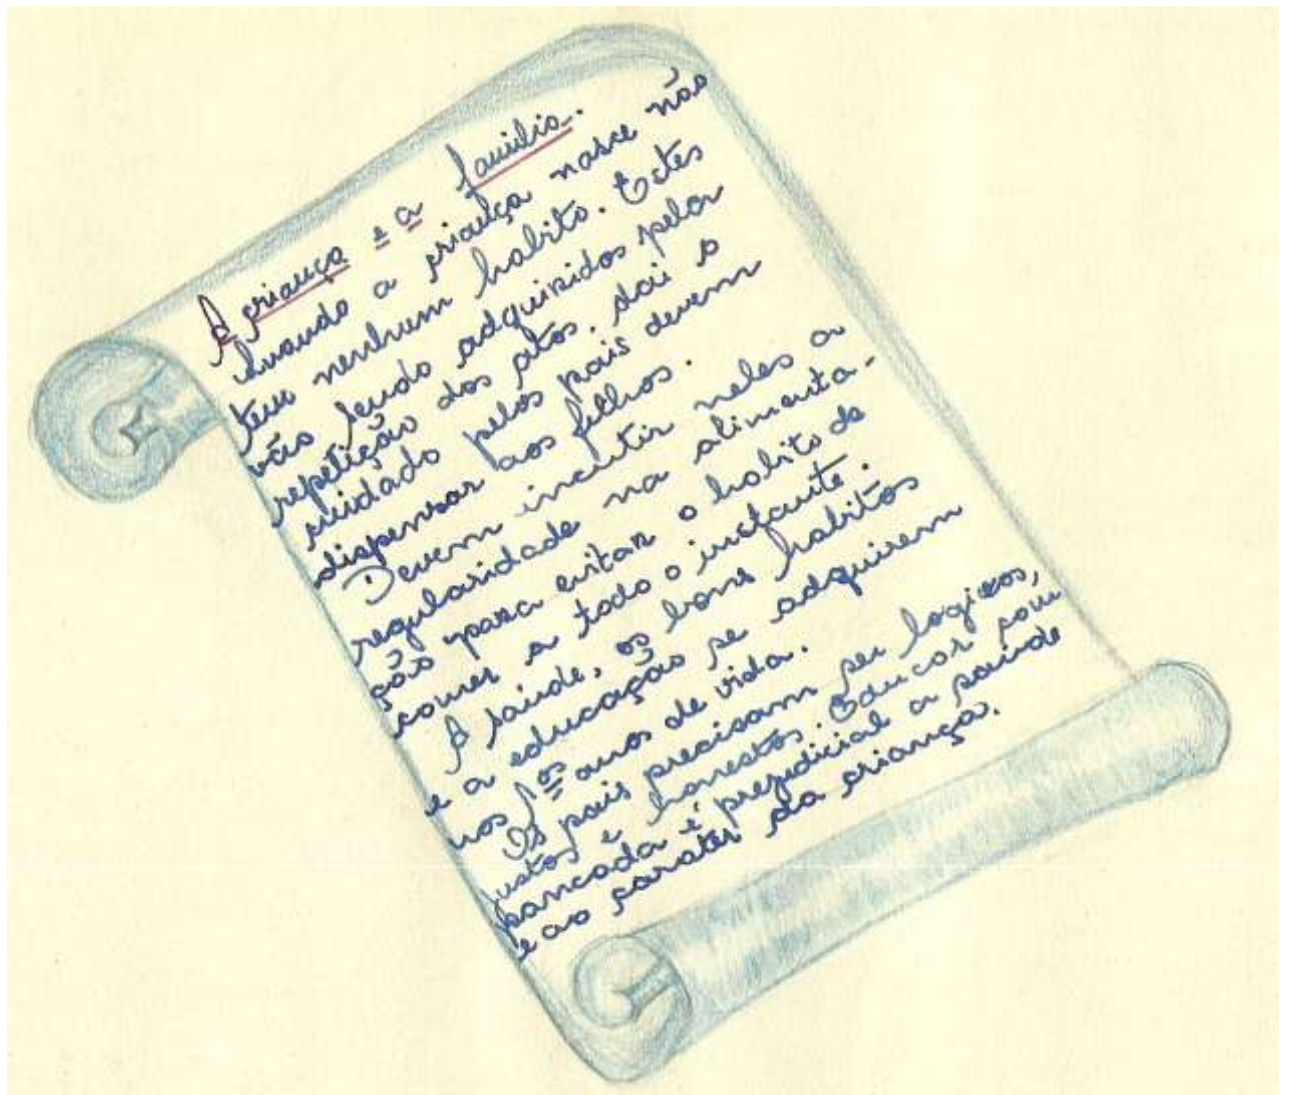 A criança e a familia.
Quando a criança nasce não
tem nenhum habito. Estes
vão sendo adquiridos pela
repetição dos atos, dai o
cuidado pelos pais devem
dispensar aos filhos.
Devem incutir neles a
regularidade na alimenta-
ção para evitar o habito de
comer a todo o instante.
A saúde, os bons habitos
e a educação se adquirem
nos 1os anos de vida.
Os pais precisam ser logicos,
justos e honestos. Educar com
pancada é prejudicial a saúde
e ao carater da criança.